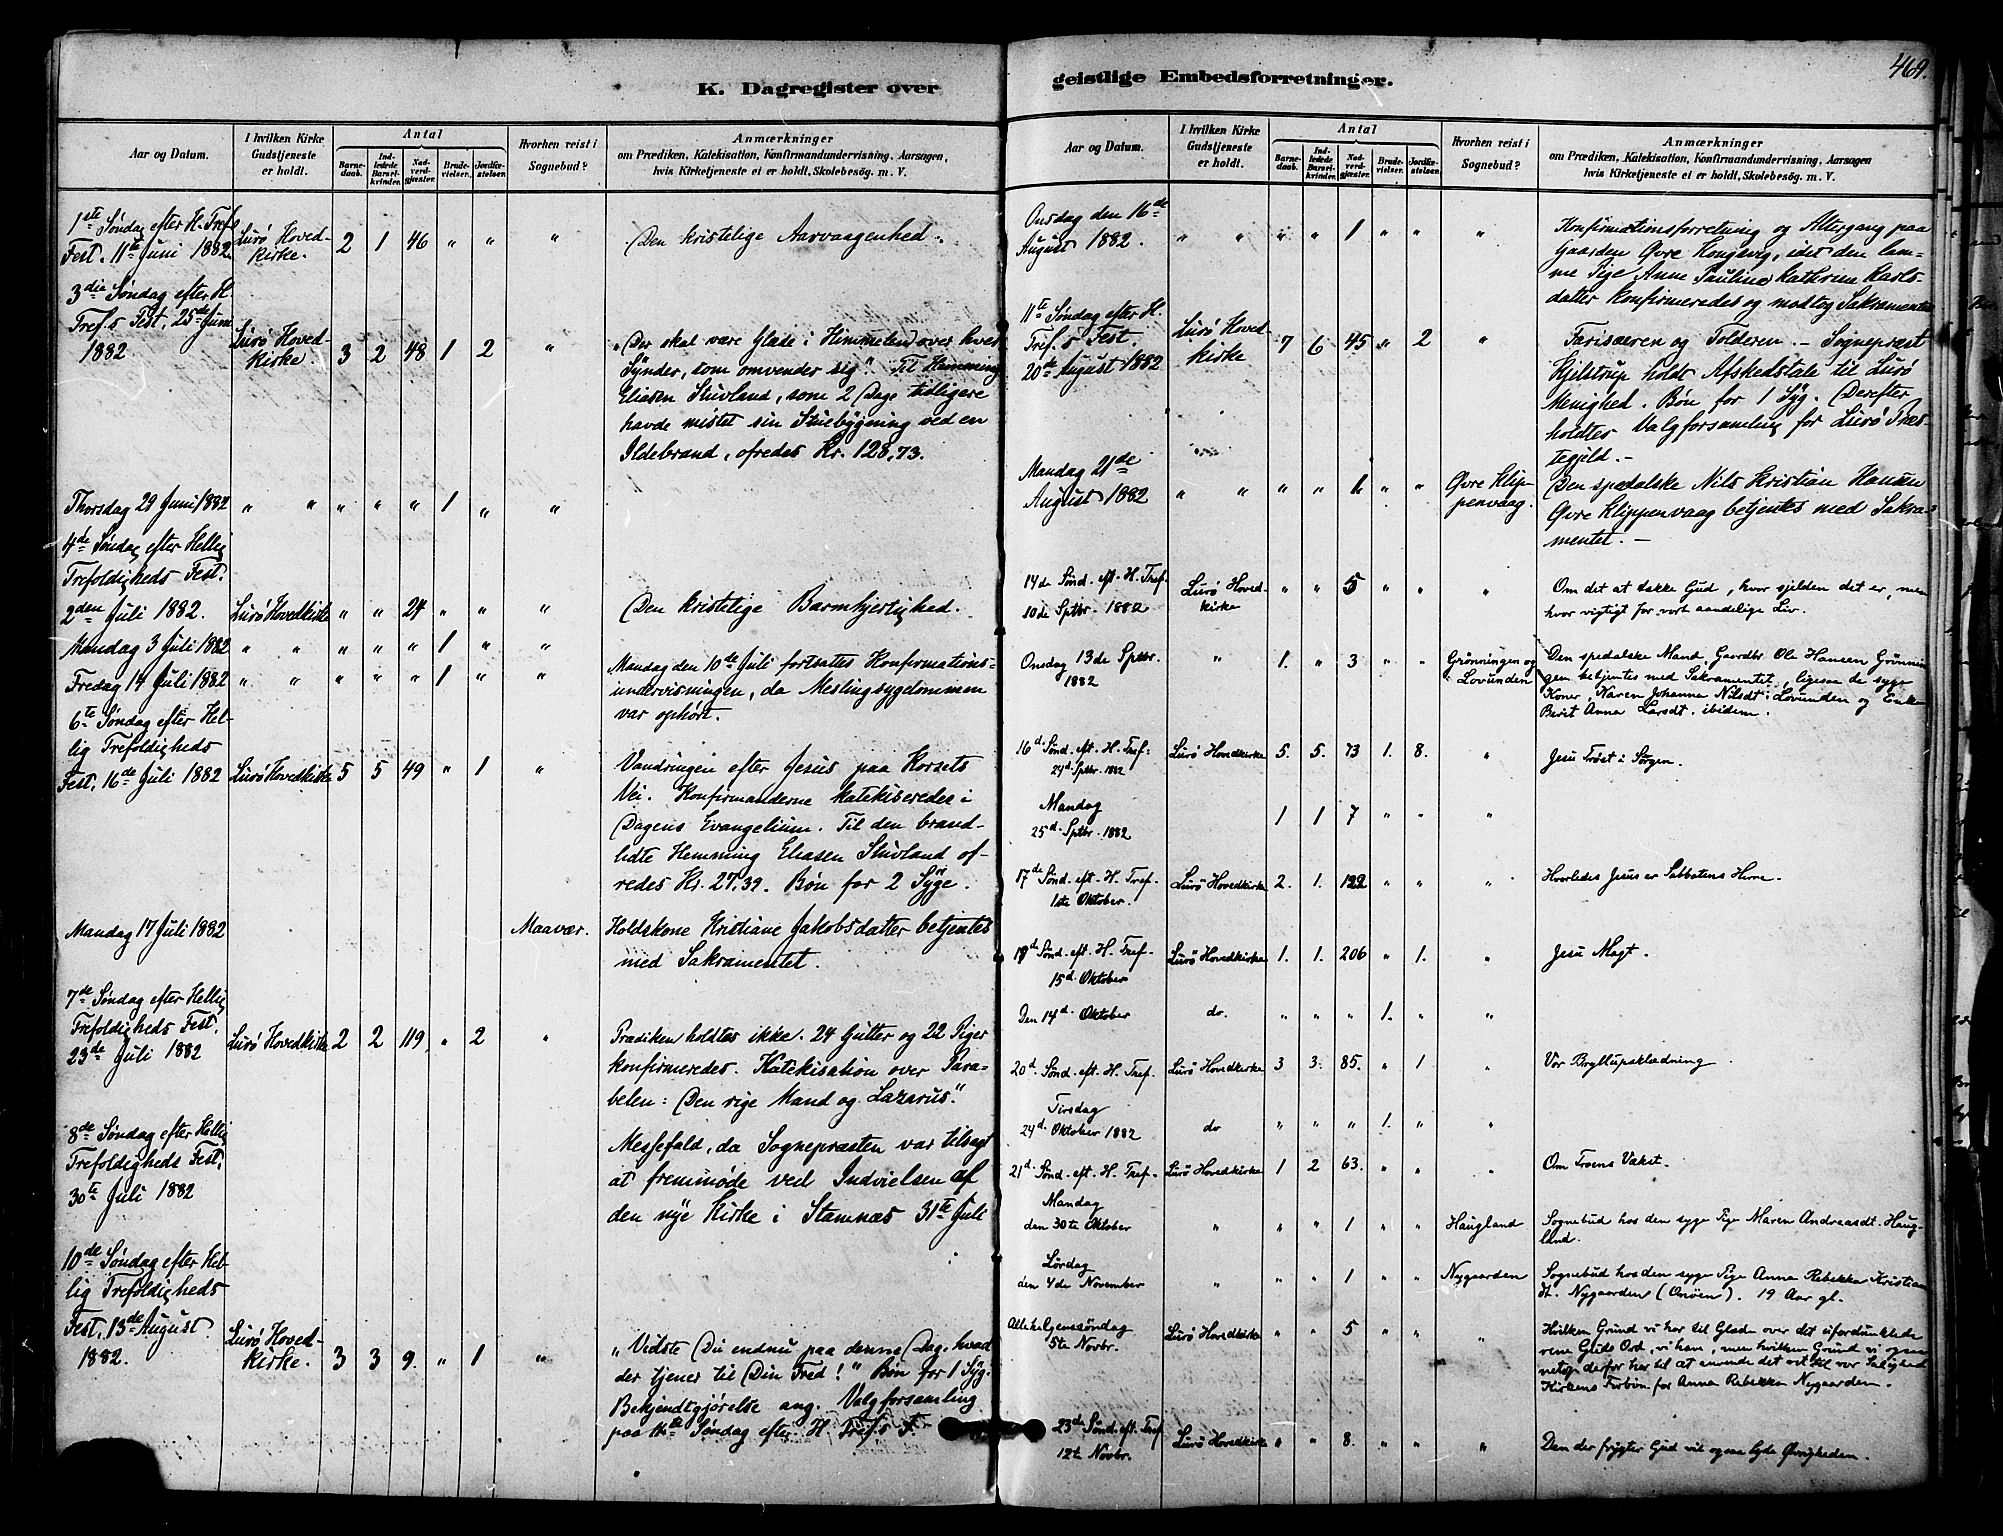 K. Dagregister over
Aar og Datum.
I hvilken Kirke
Gudstjeneste
er holdt.
Antal
Barne-
daab.
Ind-
ledede
Barsel-
kvinder.
Nad-
verd-
gjæster.
Brude-
vielser.
Jordfæ-
stelser.
Hvorhen reist i
Sognebud?
Anmærkninger
om Prædiken, Katekisation, Konfirmandundervisning, Aarsagen,
hvis Kirketjeneste ei er holdt, Skolebesøg. m. V.
1ste Søndag efter H. Tref.s
Fest. 11te Juni 1882. Lurø Hoved-
kirke. 2 1 46 " " " Den kristelige Aarvaagenhed.
3die Søndag efter H.
Tref.s Fest, 25de Juni
1882 Lurø Hoved-
kirke. 3 2 48 1 2 " "Der skal være Glæde i Himmelen over hver
Synder, som omvender sig". Til Hemming
Eliasen Stuvland, som 2 Dage tidligere
havde mistet sin Stuebygning ved en
Ildebrand, ofredes Kr. 128,73.
Thorsdag 29 Juni 1882 " " " " " 1 " "
4de Søndag efter Hellig
Trefoldigheds Fest.
2den Juli 1882. Lurø Hovedkirke " " 24 " " " Den kristelige Barmhjertighed.
Mandag 3 Juli 1882 " " " " " 1 " "
Fredag 14 Juli 1882 " " " " " 1 " " Mandag den 10de Juli fortsattes Konfirmations-
undervisningen, da Meslingsygdommen
var ophørt.
6te Søndag efter Hel-
lig Trefoldigheds
Fest, 16de Juli 1882 Lurø Hovedkirke 5 5 49 " 1 " Vandringen efter Jesus paa Korsets
Vei. Konfirmanderne katekiseredes i
Dagens Evangelium. Til den brand-
lidte Hemming Eliasen Stuvland of-
redes Kr. 27,39. Bøn for 2 Syge.
Mandag 17 Juli 1882 Maavær. Holdskone Kristiane Jakobsdatter betjentes
med Sakramentet.
7de Søndag efter Hellig
Trefoldigheds Fest,
23de Juli 1882 Lurø Hovedkirke 2 2 119 " 2 " Prædiken holdtes ikke. 24 Gutter og 22 Piger
konfirmeredes. Katekisation over Para-
belen: Den rige Mand og Lazarus."
8de Søndag efter Hellig
Trefoldigheds Fest,
30te Juli 1882 Messefald, da Sognepræsten var tilsagt
at fremmøde ved Indvielsen af
den nye Kirke i Stamnæs 31te Juli
10de Søndag efter Hel-
lig Trefoldigheds
Fest, 13de August
1882. Lurø Hoved-
kirke. 3 3 9. " 1 " "Vidste Du endnu paa denne Dag, hvad
der tjener til Din Fred!" Bøn for 1 Syg.
Bekjendtgjørelse ang. Valgforsamling
paa 11te Søndag efter H. Tref.s F.
geistlige Embedsforretninger.
469.
Aar og Datum.
I hvilken Kirke
Gudstjeneste
er holdt.
Antal
Barne-
daab.
Ind-
ledede
Barsel-
kvinder.
Nad-
verd-
gjæster.
Brude-
vielser.
Jordfæ-
stelser.
Hvorhen reist i
Sognebud?
Anmærkninger
om Prædiken, Katekisation, Konfirmandundervisning, Aarsagen
hvis Kirketjeneste ei er holdt, Skolebesøg. m. V.
Onsdag den 16de
August 1882. " " " " 1 " " " Konfirmationsforretning og Altergang paa
Gaarden Øvre Kongsvig, idet den lam-
me Pige Anne Pauline Kathrine Karls-
datter konfirmeredes og modtog Sakramentet
11te Søndag efter H.
Tref.s Fest.
20de August 1882 Lurø Hoved-
kirke 7 6 45 " 2 " Farisæeren og Tolderen. – Sognepræst
Kjelstrup holdt Afskedstale til Lurø
Menighed. Bøn for 1 Syg. Derefter
holdtes Valgforsamling for Lurø Præs-
tegjeld. –
Mandag 21de
August 1882 " " " " 1 " " Øvre Klip-
penvaag. Den spedalske Nils Kristian Hansen
Øvre Klippenvaag betjentes med Sakra-
mentet. –
14de Sønd. eft. H. Tref.
10de Sptbr. 1882 Lurø Hoved-
kirke " " 5 " " " Om det at takke Gud, hvor sjelden det er, men
hvor vigtigt for vort aandelige Liv.
Onsdag 13de Sptbr.
1882 " 1. " 3 " " Grønningen og
Lovunden Den spedalske Mand, Gaardbr. Ole Hansen Grønnin-
gen betjentes med Sakramentet, ligesaa de syge
Koner, Karen Johanna Nilsdt. Lovunden og Enke
Berit Anna Larsdt. ibidem.
16d. Sønd. eft. H. Tref.
24d. Sptbr. 1882 Lurø Hovedkirke 5. 5. 73 1. 8. " Jesu Trøst i Sorgen.
Mandag
25d. Sptbr. 1882 1 1 7 " " "
17de Sønd. eft. H. Tref.
1ste Oktober. Lurø Hovedkirke 2. 1. 122 " " " Hvorledes Jesus er Sabbatens Herre.
19d Sønd. eft. H. Tref.
15d. Oktober Lurø Hovedkirke 1. 1. 206 " 1. " Jesu Magt.
Den 14d. Oktober do. " " " 1. " "
20d. Sønd. eft. H. Tref. Lurø Hovedkirke 3 3. 85. " 1 " Vor Bryllupsklædning
Tirsdag
24d. Oktober 1882 do " " " 1. " "
21d. Sønd. eft. H. Tref. Lurø Hovedkirke 1 2 63. " " " Om Troens Vækst.
Mandag
den 30te Oktober " " " 1 " " Haugland Sognebud hos den syge Pige Maren Andreasdt. Haug-
land.
Lørdag
den 4de November " " " 1 " " Nygaarden Sognebud hos den syge Pige Anna Rebekka Kristian
dt. Nygaarden (Onøen). 19 Aar gl.
Allehelgenssøndag
5te Novbr. Lurø Hovedkirke " " 5 " " " Hvilken Grund vi har til Glæde over det ufordunklede
rene Guds Ord, vi have, men hvilken Grund vi ogsaa
netop derfor har til at anvende det ret til vor Salighed
Kirkens Forbøn for Anna Rebekka Nygaarden.
23de Sønd. eft. Tref.
12te Novbr. Lurø Hovedkirke " " 8. " " " Den der frygter Gud vil ogsaa lyde Øvrigheden.